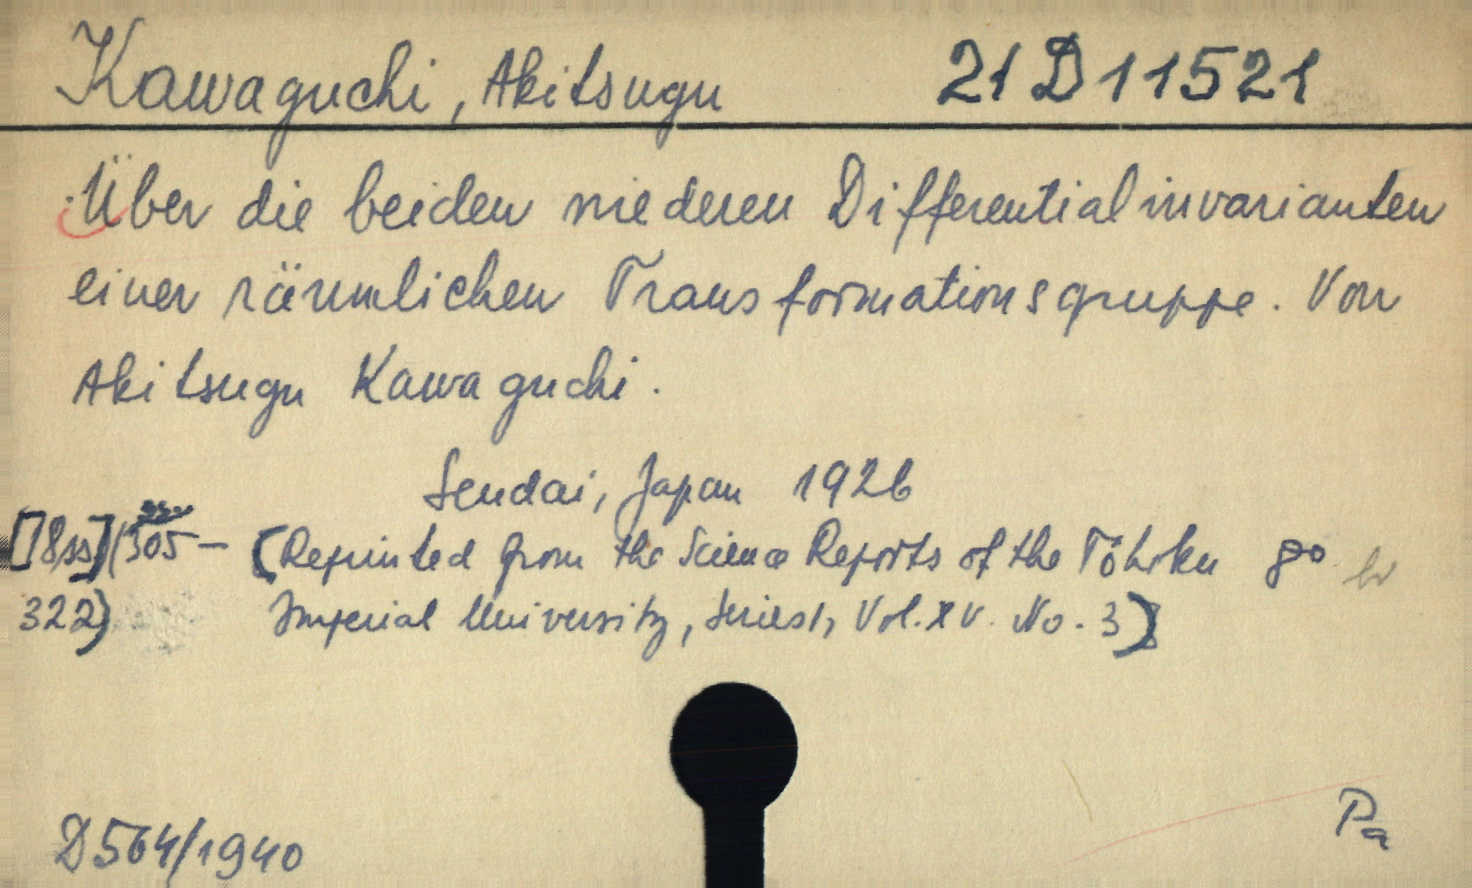 Kawaguchi, Akitsugu 21 D 11521
Über die beiden niederen Differentialinvarianten
einer räumlichen Transformationsgruppe. Von
Akitsugu Kawaguchi.
Sendai, Japan 1926
[18ss](305- (Reprinted from the Science Reports of the Tôhoku 8°
322) Imperial University, Series 1, Vol. XV. No. 3)
D 564/1940 Pa